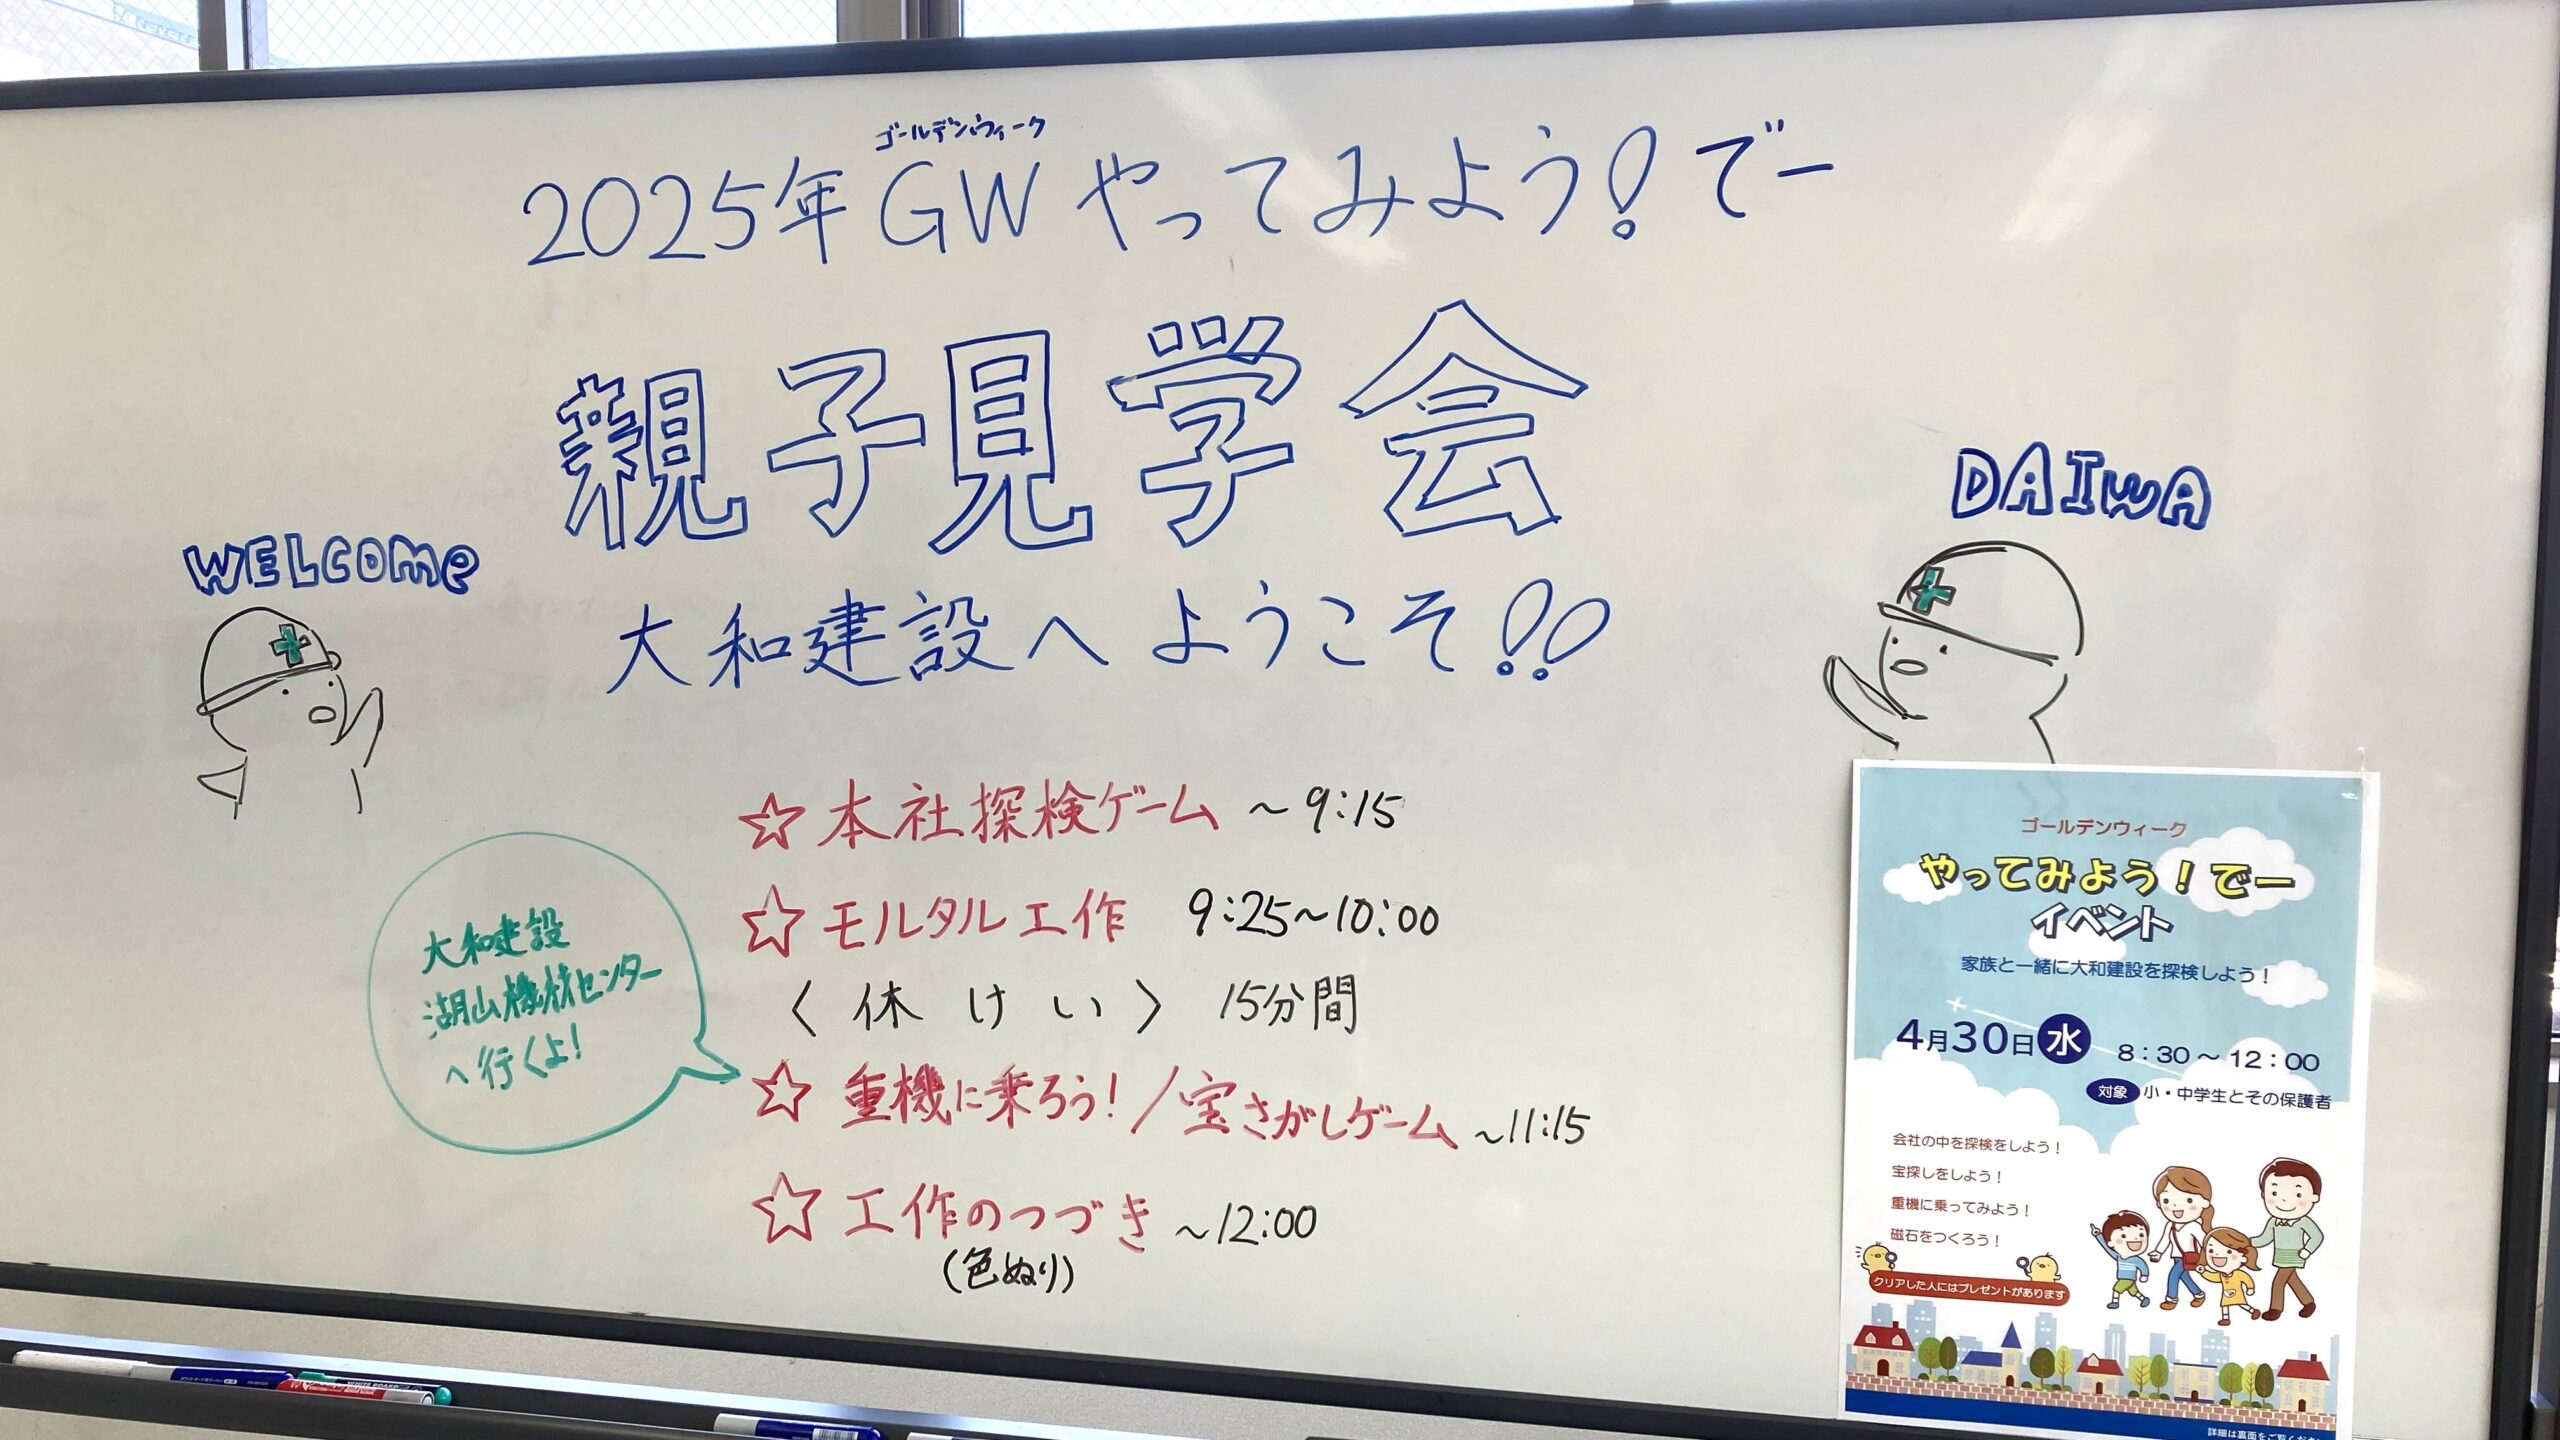 ゴールデンウィーク
2025年 GW やってみよう！でー
親子見学会
大和建設へようこそ！！
WELCOME
DAIWA
☆本社探検ゲーム ～9:15
☆モルタル工作 9:25～10:00
〈休けい〉 15分間
☆重機に乗ろう！/宝さがしゲーム ～11:15
☆工作のつづき ～12:00
(色ぬり)
大和建設
湖山機材センター
へ行くよ！
ゴールデンウィーク
やってみよう！でー
イベント
家族と一緒に大和建設を探検しよう！
4月30日 水 8：30～12：00
対象 小・中学生とその保護者
会社の中を探検をしよう！
宝探しをしよう！
重機に乗ってみよう！
磁石をつくろう！
クリアした人にはプレゼントがあります
詳細は裏面をご覧くださ